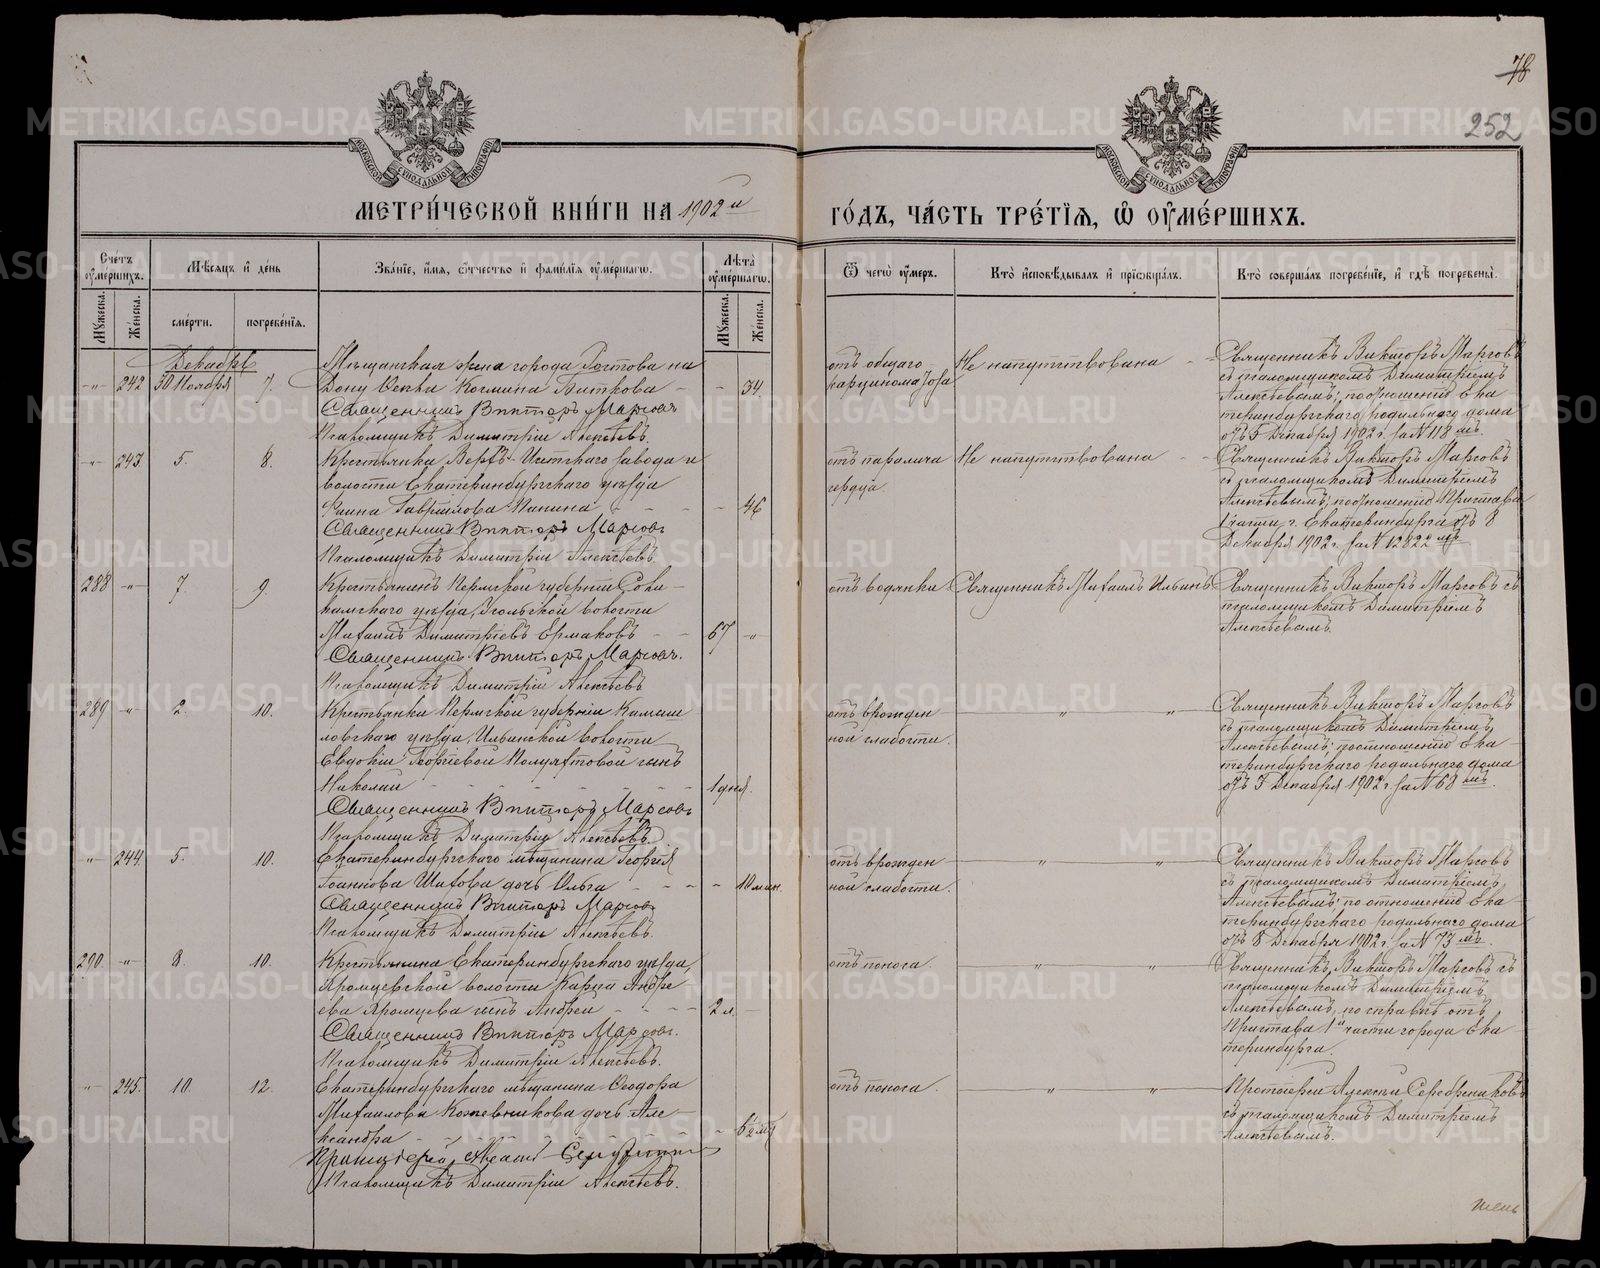 78
252
МОСКОВСКОЙ СУНОДАЛЬНОЙ ТИПОГРАФІИ
МОСКОВСКОЙ СУНОДАЛЬНОЙ ТИПОГРАФІИ
МЕТРИ́ЧЕСКОЙ КНИ́ГИ НА 1902 й
ГО́ДЪ, ЧА́СТЬ ТРЕ́ТІѦ, Ѡ҆ ОУ҆МЕ́РШИХЪ.
Сче́тъ оу҆ме́ршихъ.
Мꙋжеска.
Же́нска.
Мѣ́сяцъ и҆ де́нь
сме́рти.
погребе́нїѧ.
Зва́нїе, и҆́мѧ, ѻ҆́тчество и҆ фами́лїѧ оу҆ме́ршагѡ.
Лѣ́та оу҆ме́ршагѡ.
Мꙋжеска.
Же́нска.
Ѿ чегѡ̀ оу҆́меръ.
Кто̀ и҆сповѣ́дывалъ и҆ прїѡбща́лъ.
Кто̀ соверша́лъ погребе́нїе, и҆ гдѣ̀ погребены̀.
Декабрь
-"- 242 30 Ноября 7. Мѣщанская жена города Ростова на
Дону Фекла Космина Биткова - - 34.
Священникъ Викторъ Марсовъ
Псаломщикъ Димитрій Алексѣевъ.
отъ общаго
Не напутствована
Священникъ Викторъ Марсовъ
съ псаломщикомъ Димитріемъ
Алексѣевымъ; по отношенію Ека
теринбургскаго родильнаго дома
отъ 5 Декабря 1902 г. за № 118 мъ.
-"- 243. 5. 8. Крестьянка Верхъ-Исетскаго завода и
волости Екатеринбургскаго уѣзда
Гаврилова Папина - - - - 46
Священникъ Викторъ Марсовъ
Псаломщикъ Димитрій Алексѣевъ.
отъ паралича
сердца.
Не напутствована
Священникъ Викторъ Марсовъ
съ псаломщикомъ Димитріемъ
Алексѣевымъ; по отношенію Пристава
1 части г. Екатеринбурга отъ 8
Декабря 1902 г. за № 12822 мъ.
288 -"- 7. 9. Крестьянинъ Пермской губерніи Соли-
камскаго уѣзда, волости
Михаилъ Димитріевъ Ермаковъ - - 67 -"-
Священникъ Викторъ Марсовъ.
Псаломщикъ Димитрій Алексѣевъ
отъ водянки
Священникъ Михаилъ Ильинъ
Священникъ Викторъ Марсовъ съ
псаломщикомъ Димитріемъ
Алексѣевымъ.
289 -"- 2. 10. Крестьянки Пермской губерніи Камыш
ловскаго уѣзда, Ильинской волости
Евдокіи Георгіевой Полуяхтовой сынъ
Николай - - - - - 1 дня.
Священникъ Викторъ Марсовъ
Псаломщикъ Димитрій Алексѣевъ.
отъ врожден
ной слабости.
" "
Священникъ Викторъ Марсовъ
съ псаломщикомъ Димитріемъ
Алексѣевымъ; по отношенію Ека
теринбургскаго родильнаго дома
отъ 5 Декабря 1902 г. за № 68 мъ.
-"- 244. 5. 10. Екатеринбургскаго мѣщанина Георгія
Іоаннова Шитова дочь Ольга - - - - 10 мин.
Священникъ Викторъ Марсовъ
Псаломщикъ Димитрій Алексѣевъ.
отъ врожден
ной слабости.
" "
Священникъ Викторъ Марсовъ
съ псаломщикомъ Димитріемъ
Алексѣевымъ; по отношенію Ека
теринбургскаго родильнаго дома
отъ 8 Декабря 1902 г. за № 73 мъ.
290 -"- 8. 10. Крестьянина Екатеринбургскаго уѣзда,
волости Карпа Андре
ева сынъ Андрей - - - - 2 л. -
Священникъ Викторъ Марсовъ.
Псаломщикъ Димитрій Алексѣевъ.
отъ поноса
" "
Священникъ Викторъ Марсовъ съ
псаломщикомъ Димитріемъ
Алексѣевымъ, по справкѣ отъ
Пристава 1 й части города Ека
теринбурга.
-"- 245. 10. 12. Екатеринбургскаго мѣщанина Ѳеодора
Михаилова Кожевникова дочь Але-
ксандра - 6 1/2 м.
Протоіерей Алексій
Псаломщикъ Димитрій Алексѣевъ.
отъ поноса.
" "
Протоіерей Алексій Серебренниковъ
съ псаломщикомъ Димитріемъ
Алексѣевымъ.
METRIKI.GASO-URAL.RU